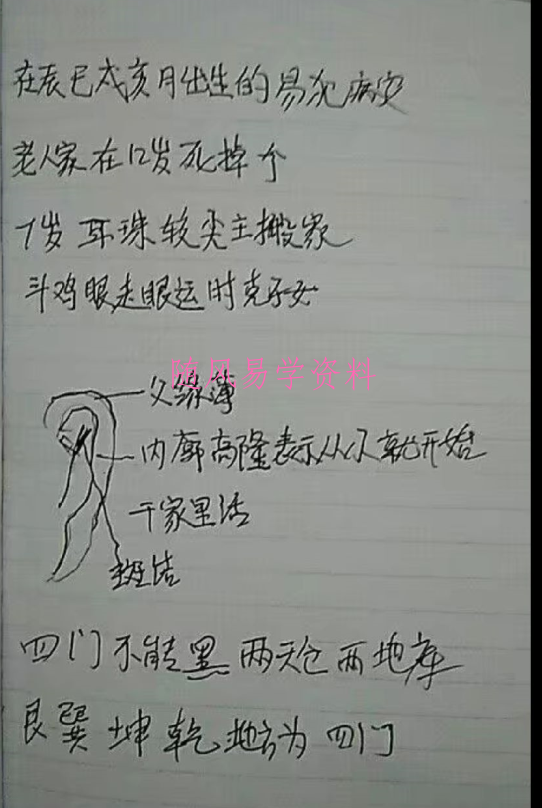 在辰巳戌亥月出生的易犯病灾
老人家在12岁死掉个
7岁 耳珠较尖主搬家
斗鸡眼走眼运时克子女
随风易学资料
父缘薄
内廓高隆表示从 就开始
干家里活
斑结
四门不能黑 两天仓两地库
艮巽坤乾地方为四门